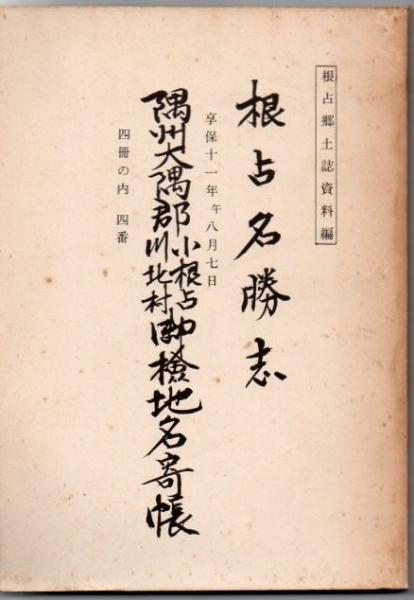 根占郷土誌資料編
根占名勝志
享保十一年午八月七日
隅州大隅郡小根占
川北村御検地名寄帳
四冊の内 四番